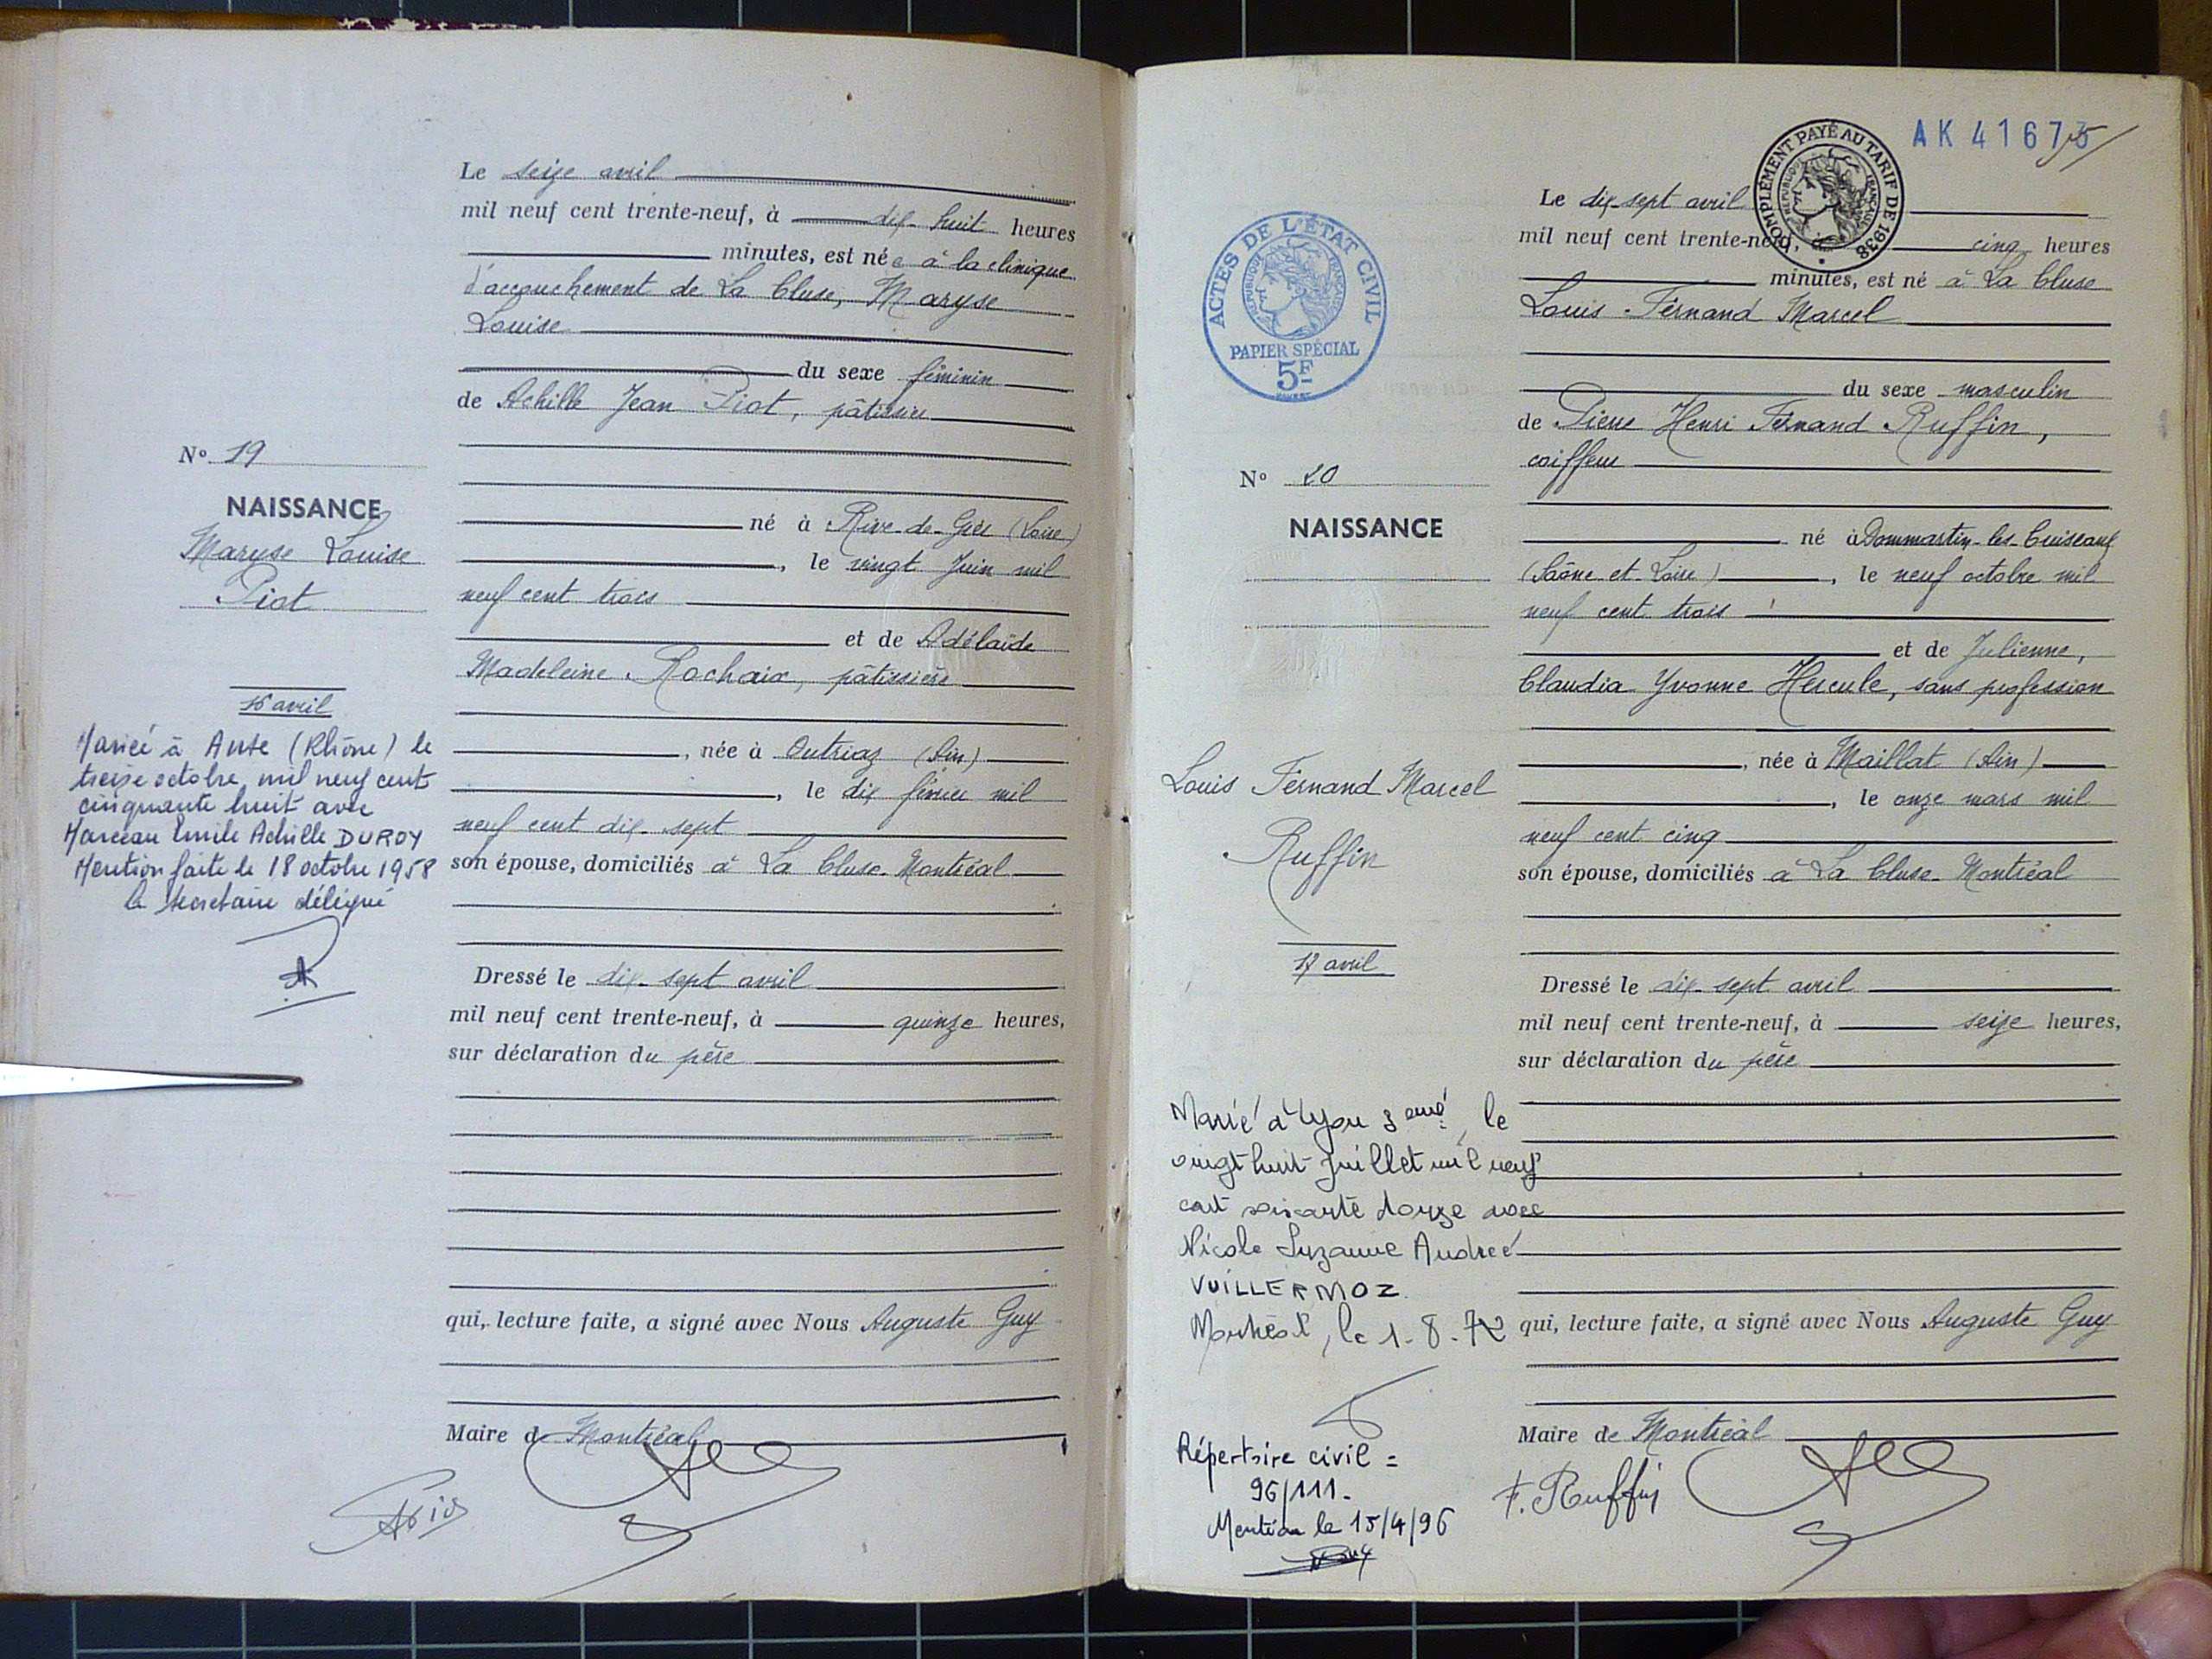 Le seize avril
mil neuf cent trente-neuf, à dix-huit heures
minutes, est née à la clinique
d'accouchement de La Cluse, Maryse
Louise
du sexe féminin
de Achille Jean Piot, pâtissier
né à Rive-de-Gier (Loire)
, le vingt Juin mil
neuf cent trois
et de Adélaïde
Madeleine Rochaix, pâtissière
, née à Outriaz (Ain)
, le dix février mil
neuf cent dix-sept
son épouse, domiciliés à La Cluse-Montréal
Dressé le dix-sept avril
mil neuf cent trente-neuf, à quinze heures,
sur déclaration du père
qui, lecture faite, a signé avec Nous Auguste Guy
Maire de Montréal
No 19
NAISSANCE
Maryse Louise
Piot
16 avril
Mariée à Anse (Rhône) le
treize octobre mil neuf cent
cinquante huit avec
Marceau Emile Achille DUROY
Mention faite le 18 octobre 1958
le secretaire délégué
AK 41675
COMPLÉMENT PAYÉ AU TARIF DE 1938
RÉPUBLIQUE FRANÇAISE
Le dix-sept avril
mil neuf cent trente-neuf, cinq heures
minutes, est né à La Cluse
Louis Fernand Marcel
du sexe masculin
de Pierre Henri Fernand Ruffin,
coiffeur
né à Dommartin-les-Cuiseaux
(Saône et Loire), le neuf octobre mil
neuf cent trois
et de Julienne,
Claudia Yvonne Hercule, sans profession
, née à Maillat (Ain)
, le onze mars mil
neuf cent cinq
son épouse, domiciliés à La Cluse-Montréal
Dressé le dix-sept avril
mil neuf cent trente-neuf, à seize heures,
sur déclaration du père
qui, lecture faite, a signé avec Nous Auguste Guy
Maire de Montréal
F. Ruffin
ACTES DE L'ÉTAT CIVIL
RÉPUBLIQUE FRANÇAISE
PAPIER SPÉCIAL
5F
No 20
NAISSANCE
Louis Fernand Marcel
Ruffin
17 avril
Marié à Lyon 3eme, le
vingt huit Juillet mil neuf
cent soixante douze avec
Nicole Suzanne Andrée
VUILLERMOZ
Montréal, le 1-8-72
Répertoire civil =
96/111-
Mention le 15/4/96